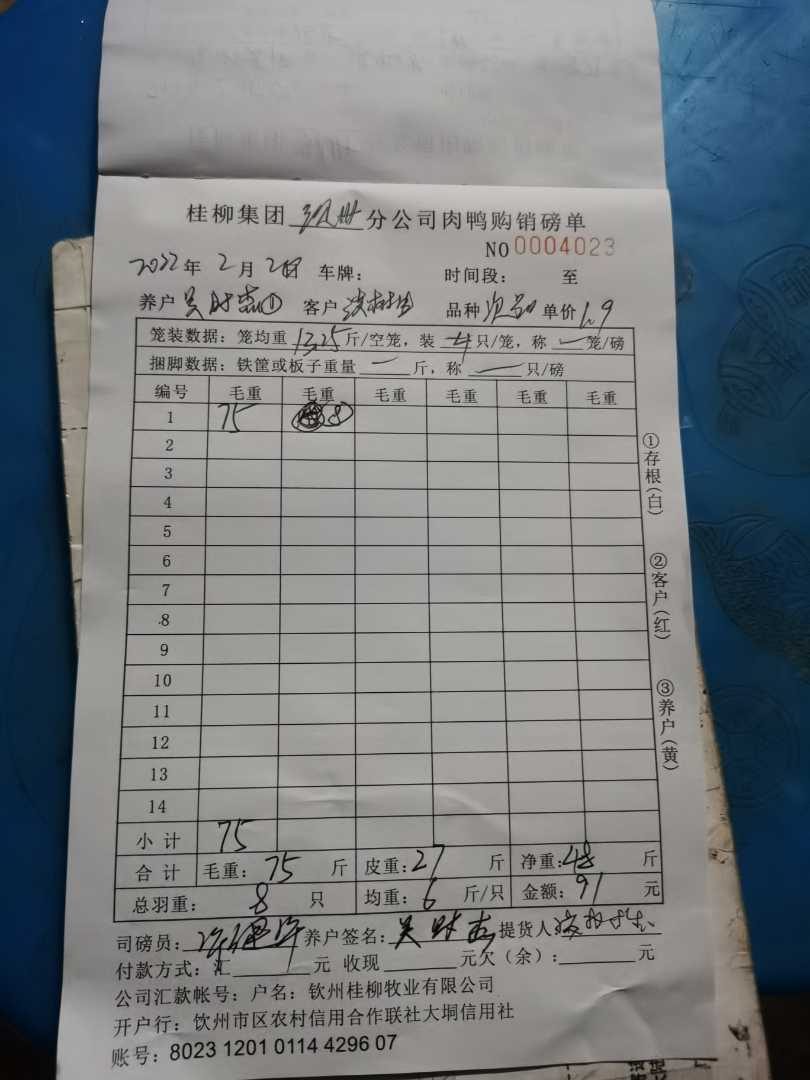 桂柳集团 钦州 分公司肉鸭购销磅单
NO 0004023
2022年 2月 2日 车牌: 时间段: 至
养户 吴财 ① 客户 品种 次品 单价 1.9
笼装数据: 笼均重 13.25 斤/空笼, 装 4 只/笼, 称 一 笼/磅
捆脚数据: 铁筐或板子重量 一 斤, 称 一 只/磅
编号 毛重 毛重 毛重 毛重 毛重 毛重
1 75 8
2
3
4
5
6
7
8
9
10
11
12
13
14
小计 75
合计 毛重: 75 斤 皮重: 27 斤 净重: 48 斤
总羽重: 8 只 均重: 6 斤/只 金额: 91 元
司磅员: 许 养户签名: 吴财 提货人
付款方式: 汇 元 收现 元欠(余): 元
公司汇款帐号: 户名: 钦州桂柳牧业有限公司
开户行: 饮州市区农村信用合作联社大垌信用社
账号: 8023 1201 0114 4296 07
①存根(白)
②客户(红)
③养户(黄)